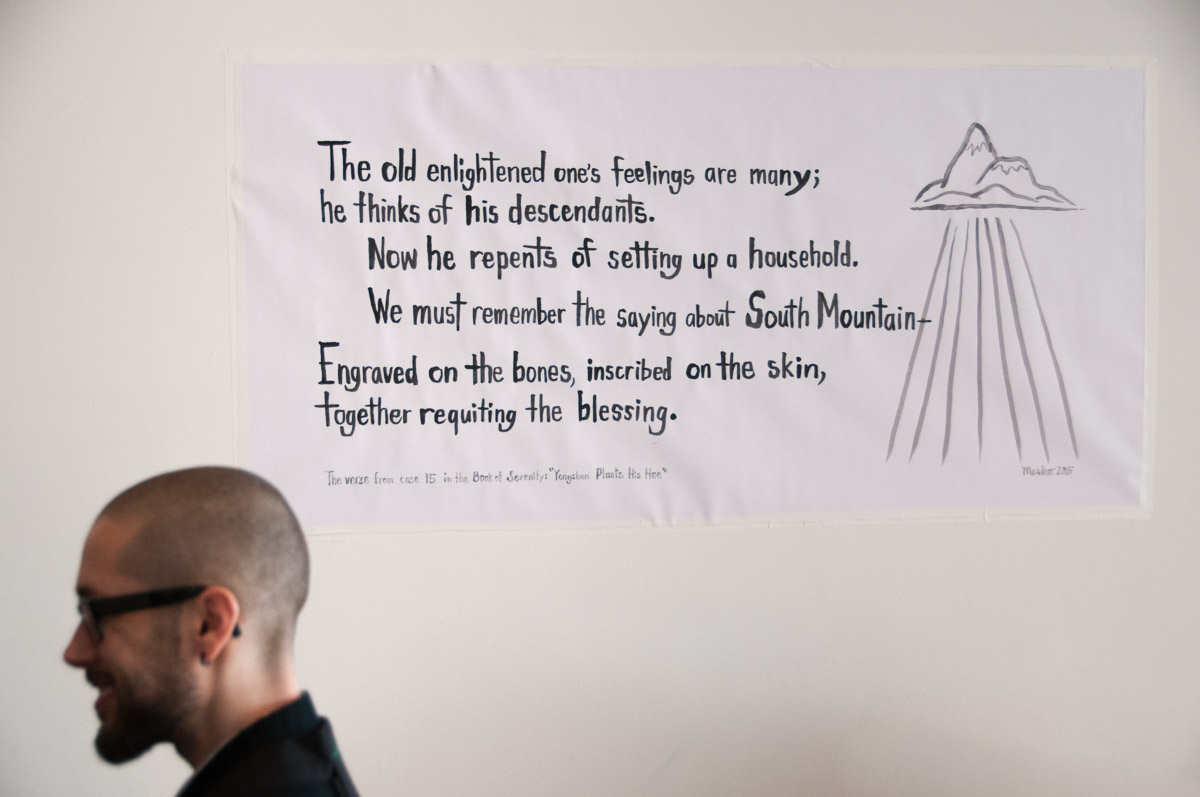 The old enlightened one's feelings are many;
he thinks of his descendants.
Now he repents of setting up a household.
We must remember the saying about South Mountain—
Engraved on the bones, inscribed on the skin,
together requiting the blessing.
The verse from case 15 in the Book of Serenity: "Yangshan Plants His Hoe"
2015